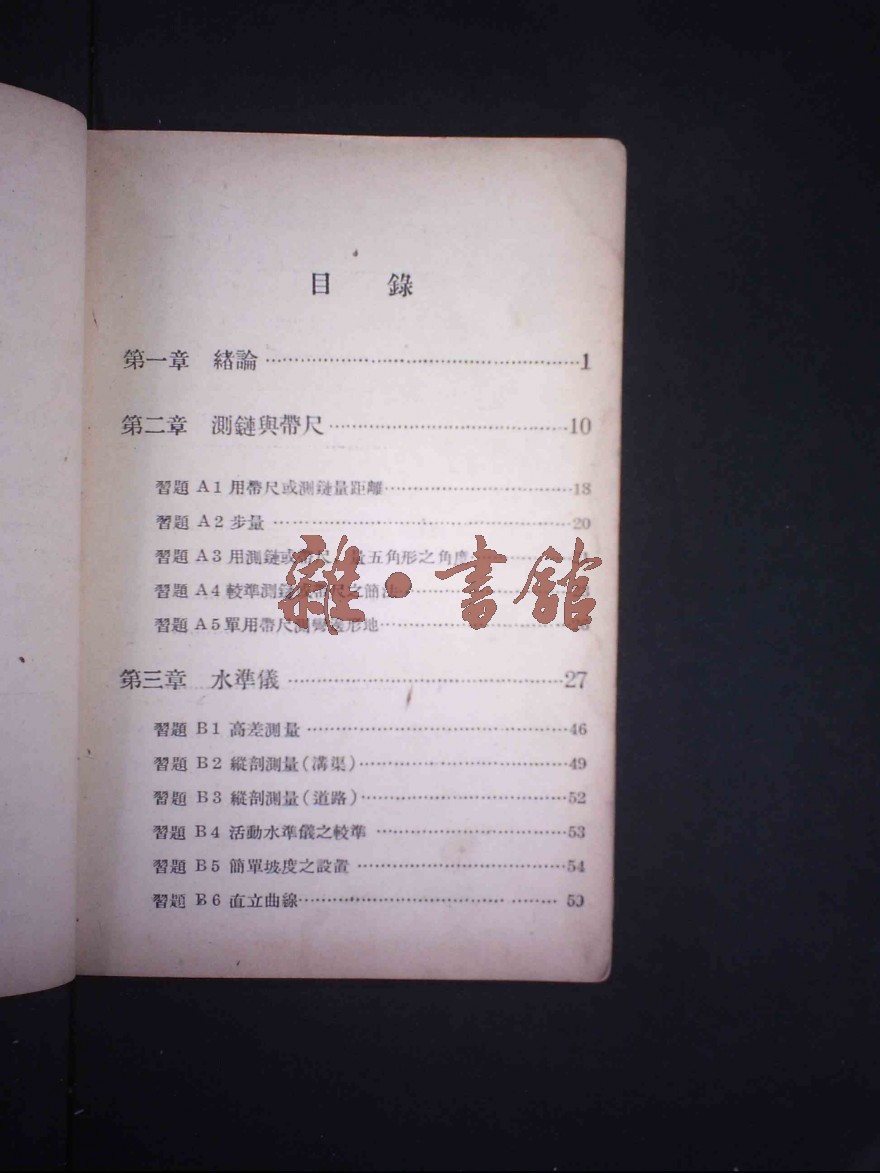 目錄
第一章 緒論……1
第二章 測鏈與帶尺……10
習題 A1 用帶尺或測鏈量距離……18
習題 A2 步量……20
習題 A3 用測鏈或帶尺 量五角形之角度……
習題 A4 較準測鏈或帶尺之簡法……
習題 A5 單用帶尺測彎邊形地……
雜·書館
第三章 水準儀……27
習題 B1 高差測量……46
習題 B2 縱剖測量(溝渠)……49
習題 B3 縱剖測量(道路)……52
習題 B4 活動水準儀之較準……53
習題 B5 簡單坡度之設置……54
習題 B6 直立曲線……